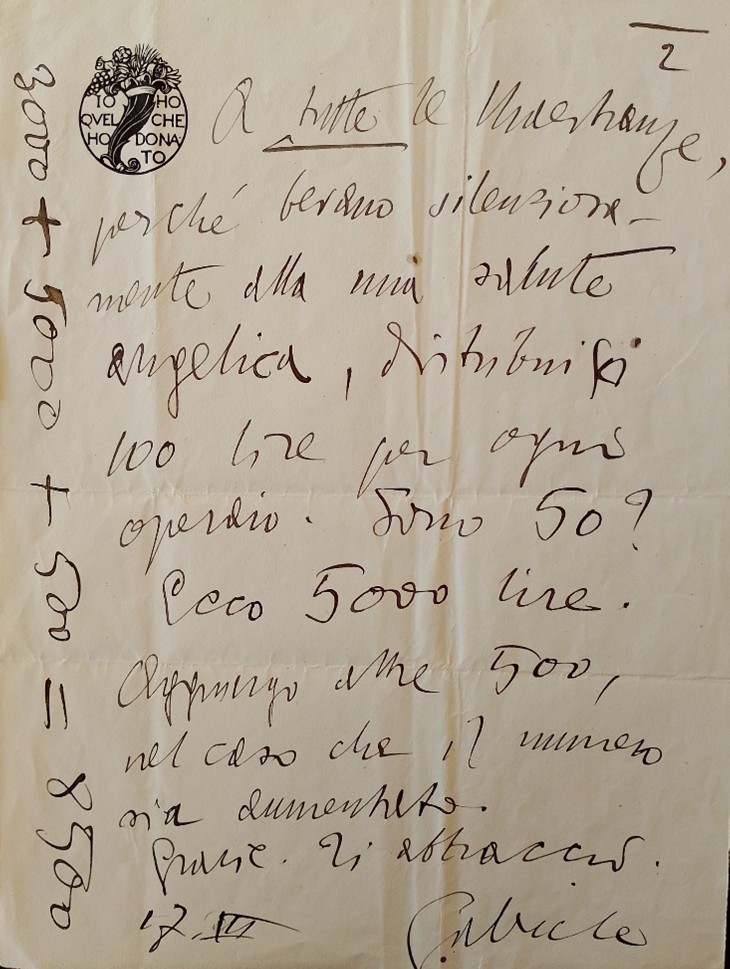 2
IO HO
QUEL CHE
HO DONA
TO
A tutte le Maestranze,
perché bevano silenziosa-
mente alla mia salute
angelica, distribuisci
100 lire per ogni
operaio. Sono 50?
Ecco 5000 lire.
Aggiungo altre 500,
nel caso che il numero
sia aumentato.
Grazie. Ti abbraccio.
Gabriele
3000 + 5000 + 500 = 8500